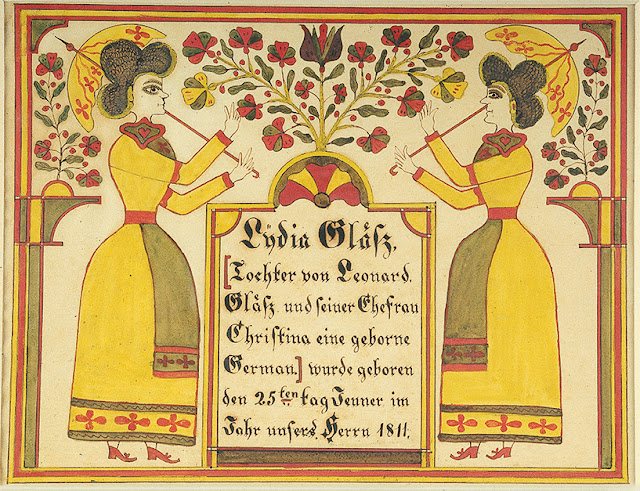 Lÿdia Glåsz,
[Tochter von Leonard.
Glåsz und seiner Ehefrau
Christina eine geborne
German.] wurde geboren
den 25ten tag Jenner im
Jahr unsers Herrn 1811.